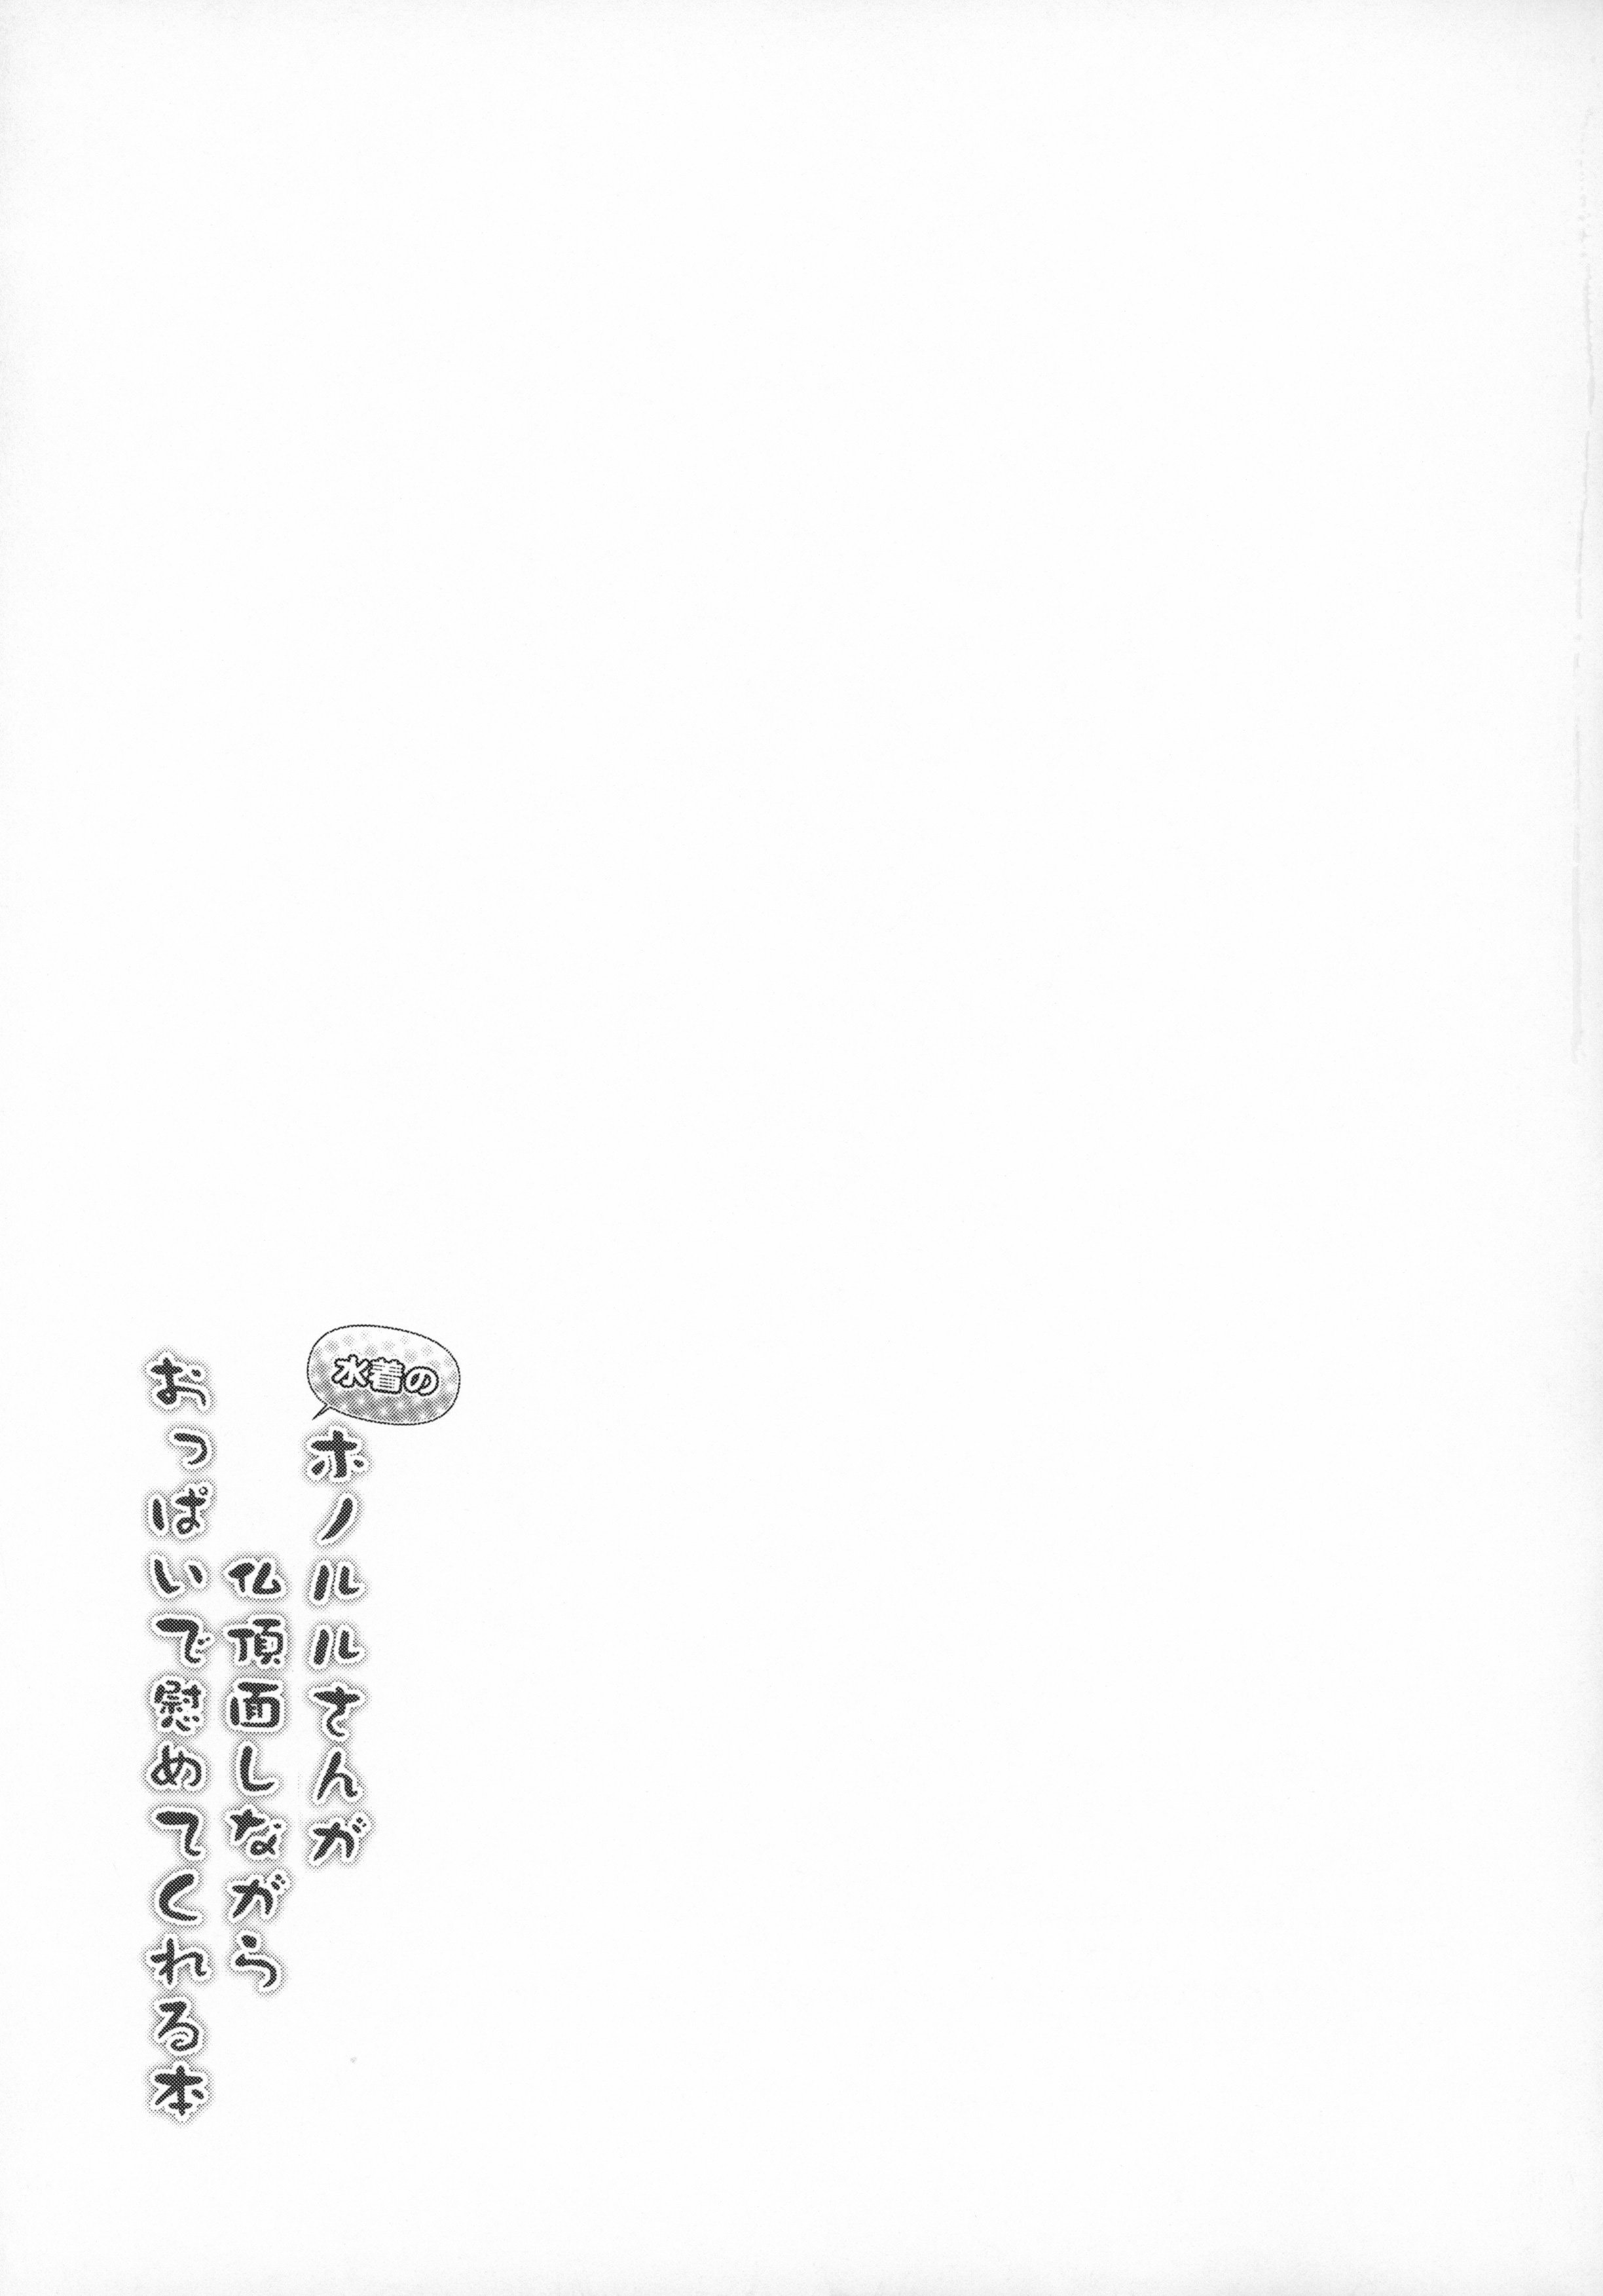 水着の
ホノルルさんが
仏頂面しながら
おっぱいで慰めてくれる本